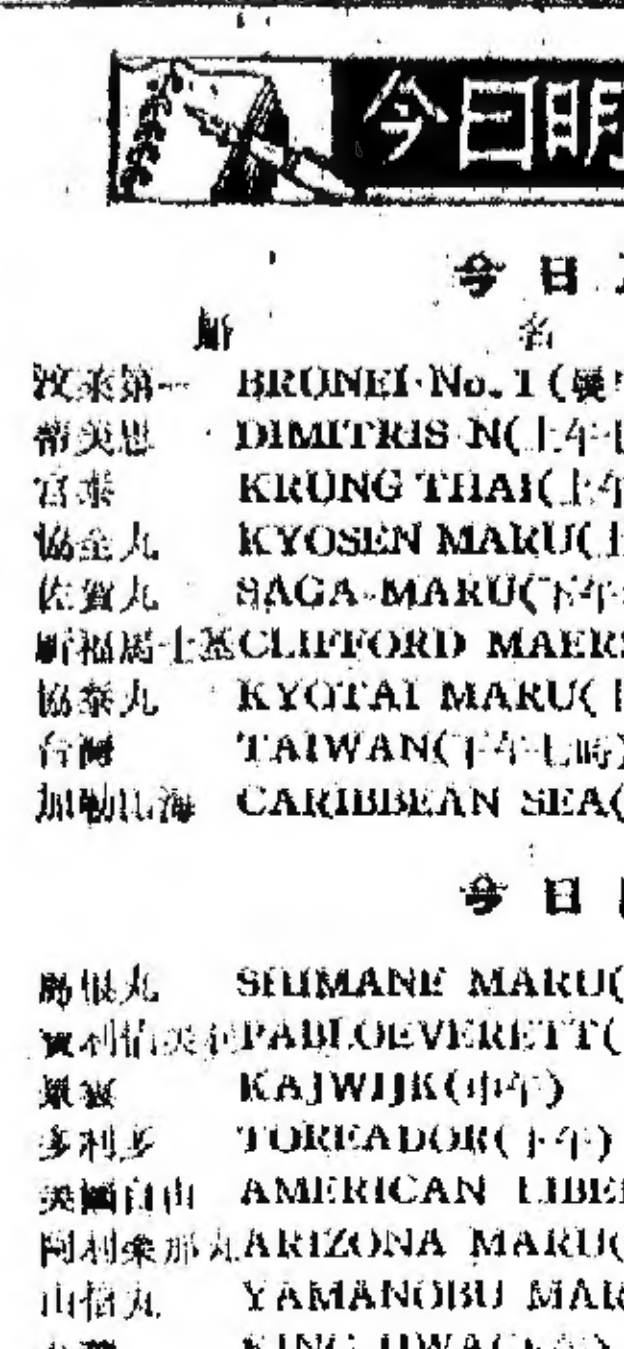 今日明
今日
船 名
汶萊第一 BRUNEI No. 1 (
帝美思 DIMITRIS N(上午七
宮泰 KRUNG THAI(上午
協全丸 KYOSEN MARU(上
佐賀丸 SAGA MARU(下午
福馬士基 CLIFFORD MAERS
協泰丸 KYOTAI MARU(
台灣 TAIWAN(下午七時)
加勒比海 CARIBBEAN SEA(
今日
島根丸 SHIMANE MARU(
PABLOEVERETT(
KAJWIJK(中午)
多利多 TOREADOR(下午)
美國自由 AMERICAN LIBE
阿利桑那丸 ARIZONA MARU(
山信丸 YAMANOBU MAR
KING HWA(下午)